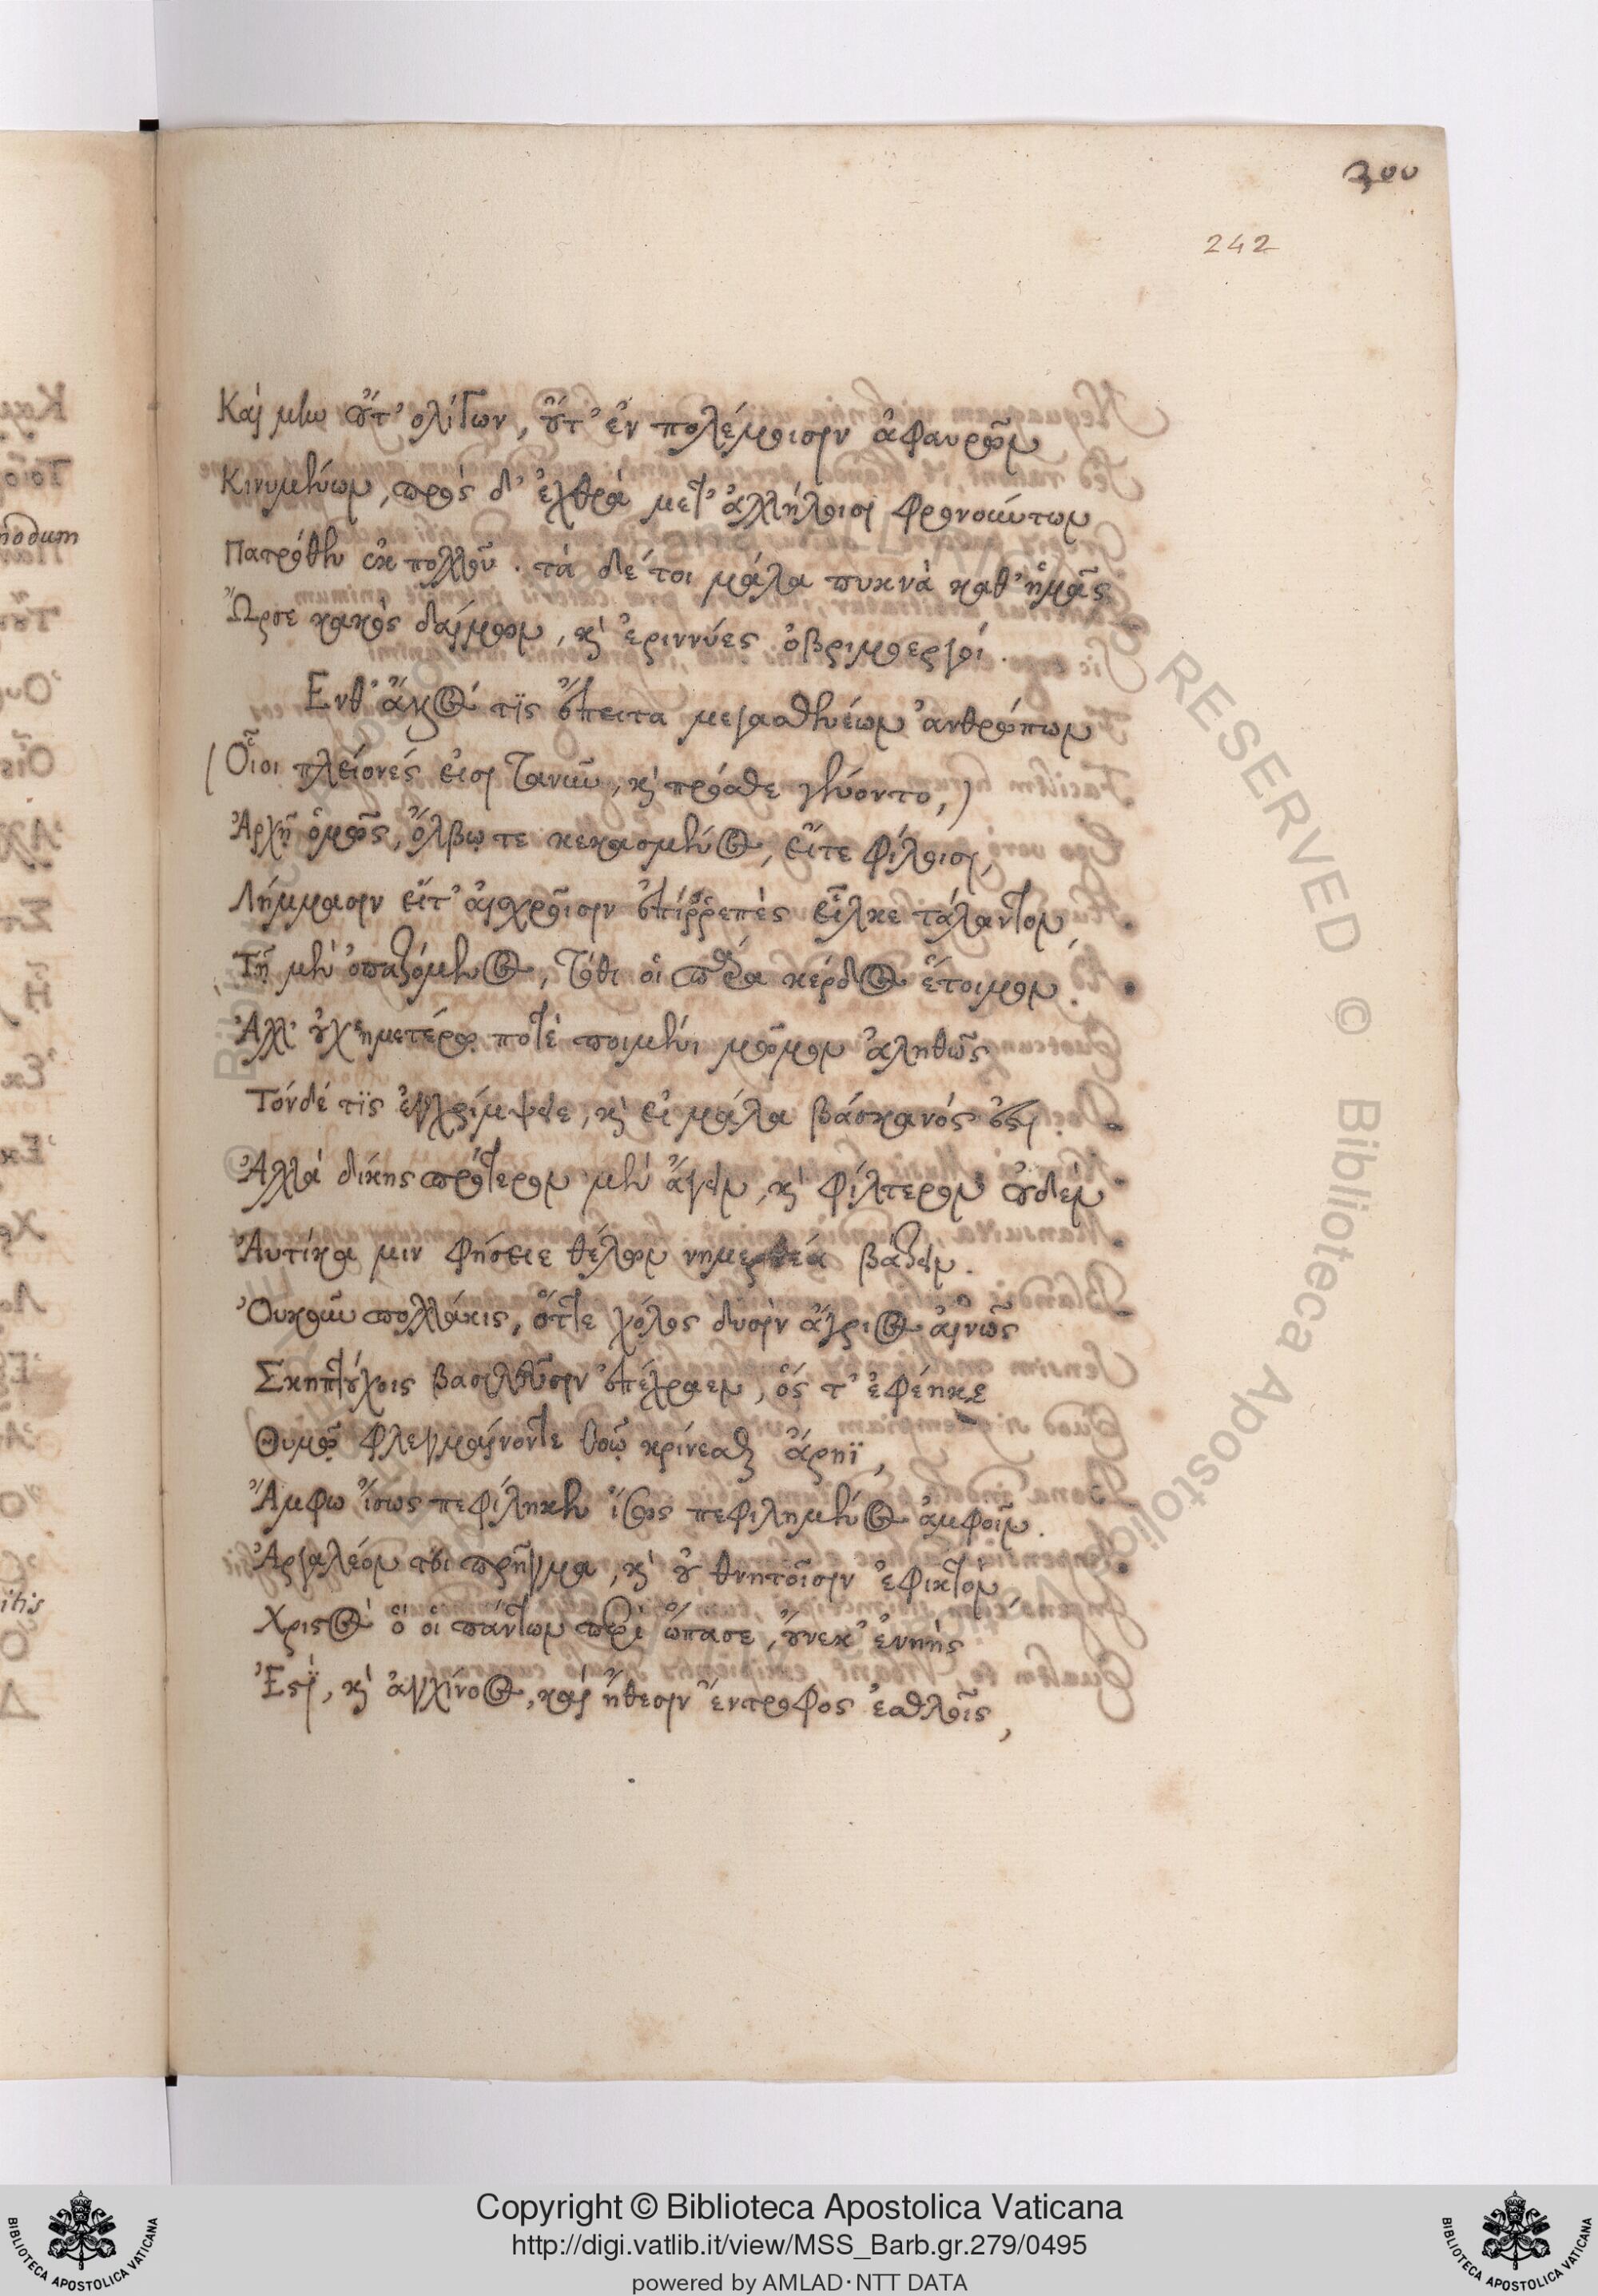 300
242
Καὶ μὴν οὔτ' ολίγων, οὔτ' ἐν πολέμοισιν ἀφαυρῶν
Κινυμένων, πρὸς δ' ἐχθρὰ μετ' ἀλλήλοισι φρονούντων
Πατρόθεν ἐκ πολλοῦ. τὰ δέ τοι μάλα πυκνὰ καθ' ἡμᾶς
Ὦρσε κακὸς δαίμων, καὶ ἐριννύες ὀβριμοεργοί.
Ενθ' ἄλλος τῒς ἔπειτα μεγασθενέων ἀνθρώπων
(Οἷοι πλείονές εἰσι τανῦν, καὶ πρόσθε γένοντο,)
Ἀρχῇ ὁμῶς, ὄλβῳ τε κεκασμένος, εἴτε φίλοισι,
Λήμμασιν εἴτ' αἰσχροῖσιν ἐπίῤῥεπὲς εἷλκε τάλαντον,
Τῇ μὲν ὀπαζόμενος, τόθι οἱ παρὰ κέρδος ἕτοιμον.
Ἀλλ' οὐχ ἡμετέρῳ ποτὲ ποιμένι μῶμον ἀληθῶς
Τόνδέ τῒς ἐγχρίμψψε, καὶ εἰ μάλα βάσκανός ἐστι.
Ἀλλὰ δίκης πρότερον μὲν ἄγειν, καὶ φίλτερον οὐδὲν
Ἀυτίκα μιν φήσειε θέλων νημερτέα βάζειν.
Ὀυκοῦν πολλάκις, ὅττε χόλος δυσὶν ἄγριος αἰνῶς
Σκηπτούχοις βασιλεῦσιν ἐπέχραεν, ὅς τ' ἐφέηκε
Θυμῷ φλεγμαίνοντε θοῷ κρίνεσθαι ἄρηϊ,
Ἄμφω ἴσως πεφίληκεν ἴσως πεφιλημένος ἀμφοῖν.
Ἀργαλέον τόι πρῆγμα, καὶ οὐ θνητοῖσιν ἐφικτὸν
Χριστὸς ὅ οἱ πάντων περὶ ὤπασε, οὕνεκ' ἐνηής
Ἐστὶ, καὶ ἀγχίνοος, καὶ ἤθεσιν ἔντροφος ἐσθλοῖς,
Copyright © Biblioteca Apostolica Vaticana
http://digi.vatlib.it/view/MSS_Barb.gr.279/0495
powered by AMLAD·NTT DATA